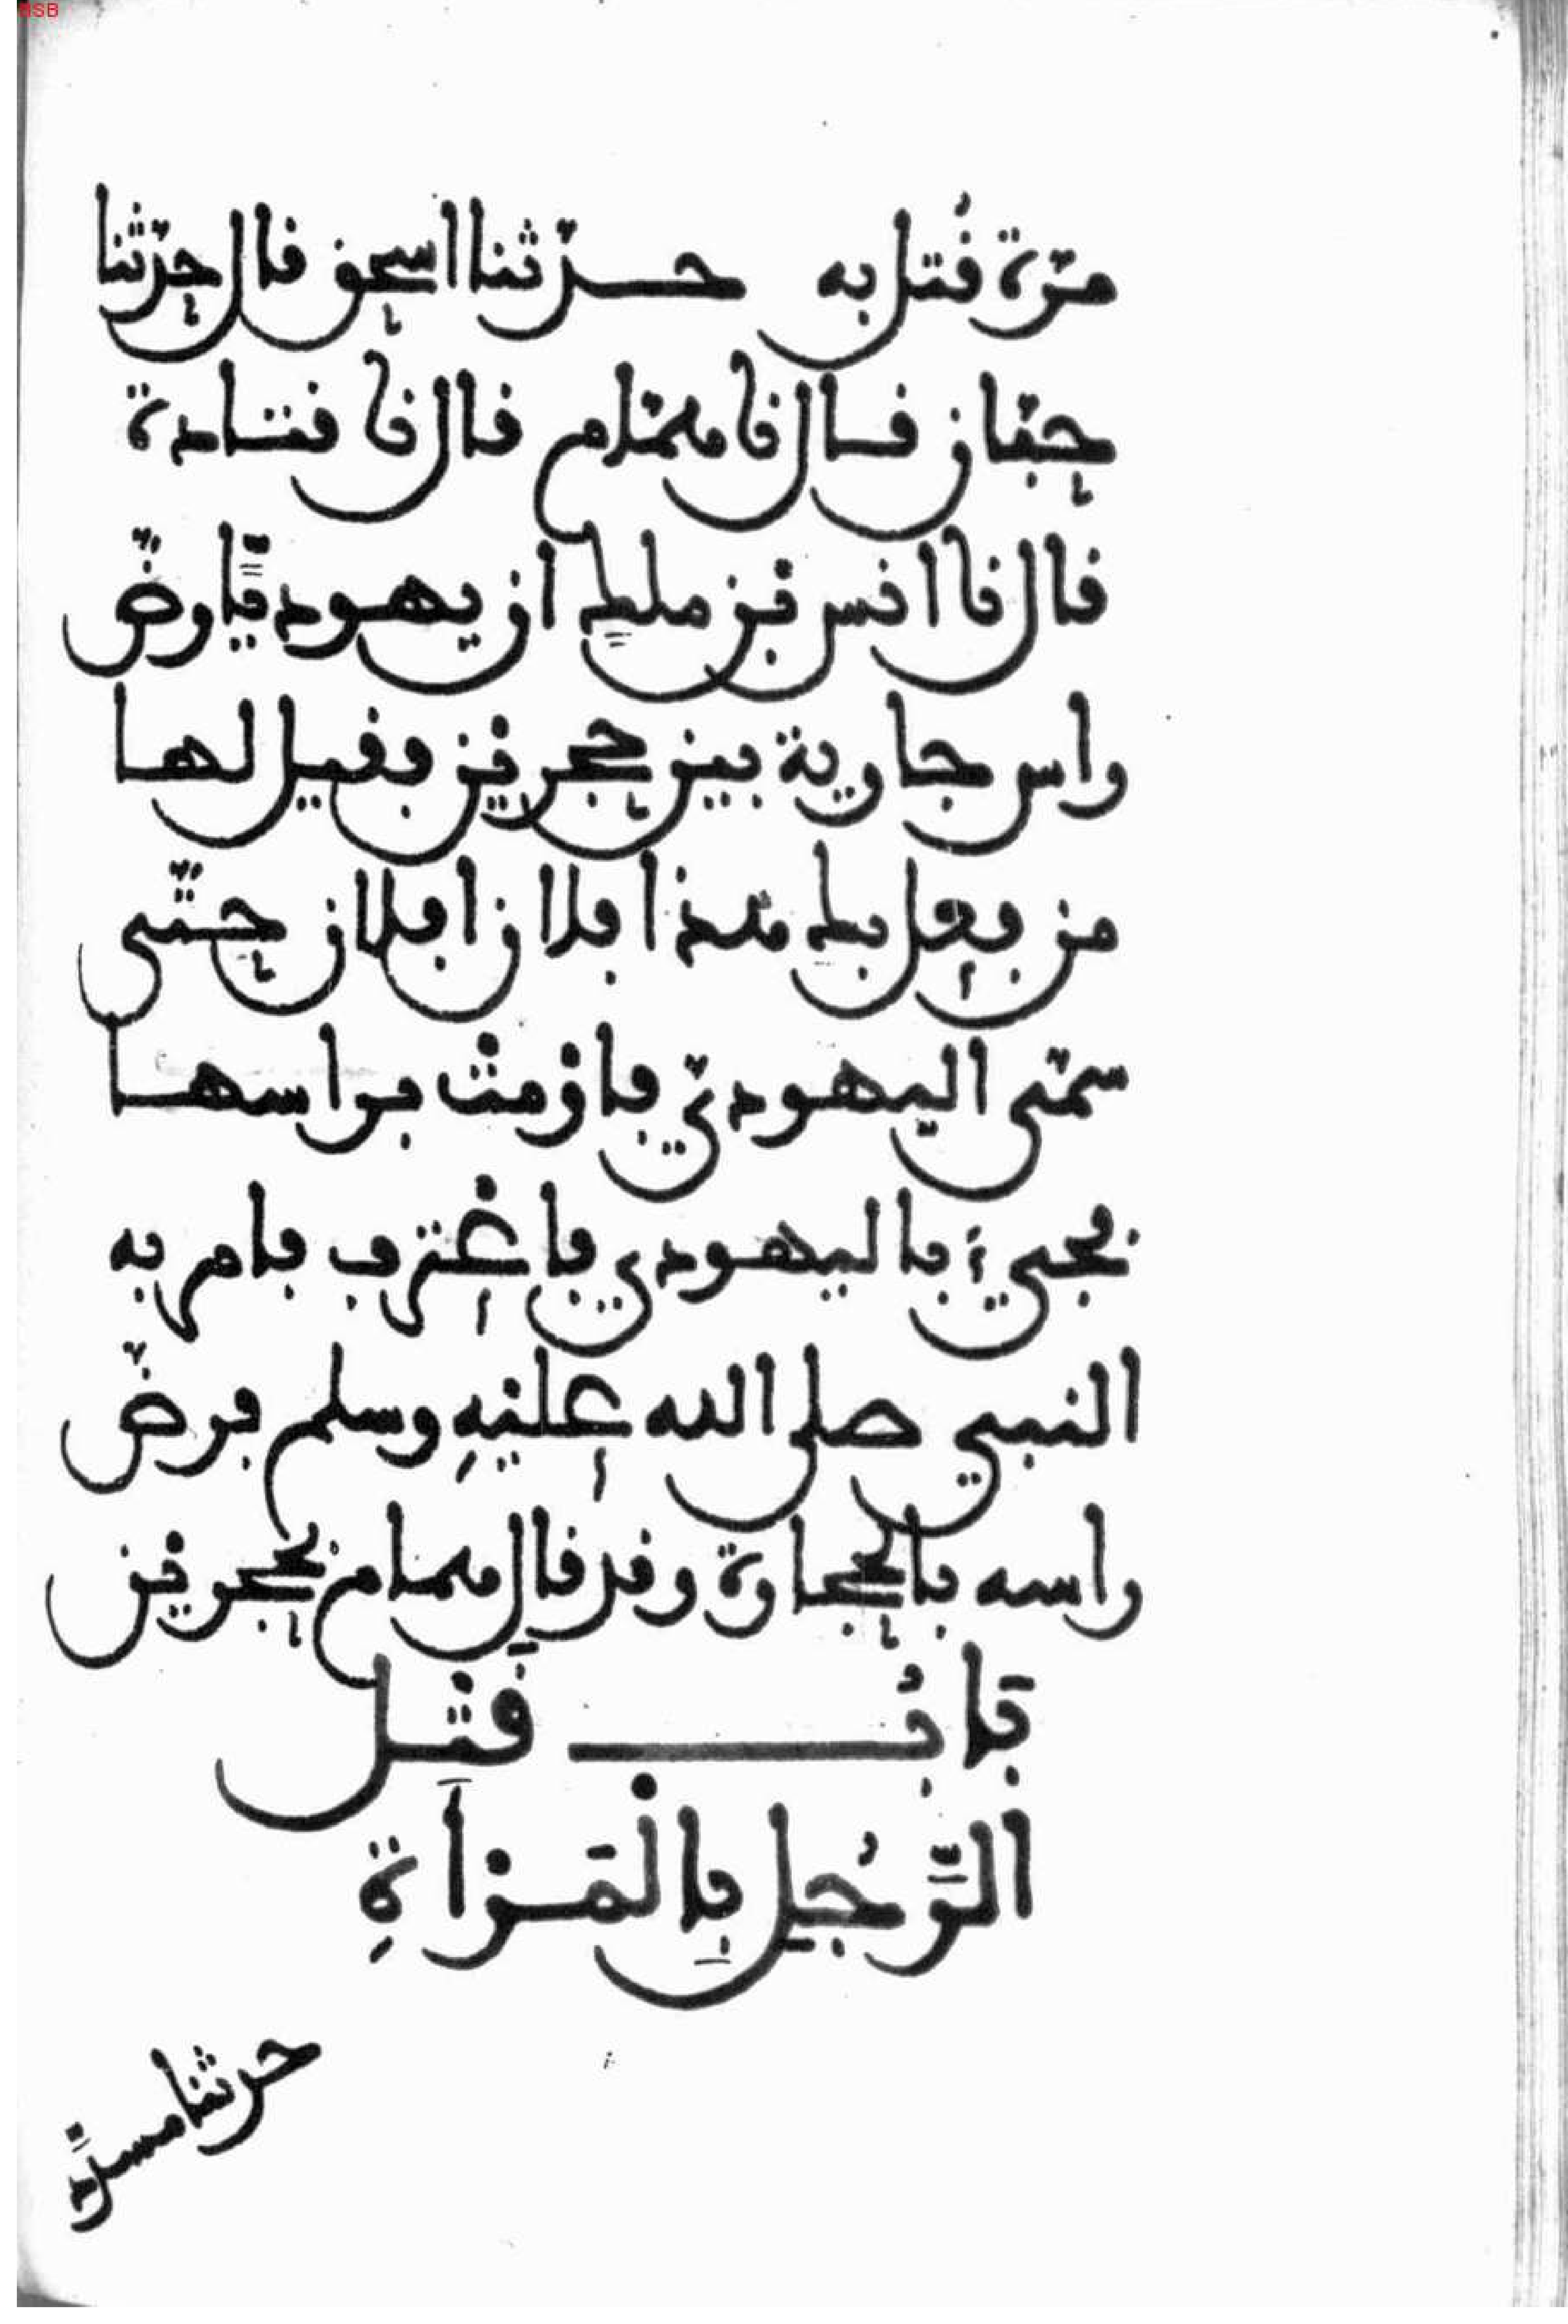 مرّة قُتل به حدّثنا اسحق قال حدّثنا
حبّان قال نا همّام قال نا قتادة
قال نا انس بْن ملك ان يهوديًّا رضّ
راس جارية بين حجريْن فقيل لها
من فعل بك هذا افلان افلان حتّى
سمّى اليهوديّ فاوْمتْ براسها
فجيء باليهودي فاعْترف فامر به
النبي صلى الله علَيْهِ وسلم فرضّ
راسه بالحجارة وقد قال همام بحجريْن
بَابُ قَتْلِ
الرَّجُلِ بِالْمَرْأَةِ
حدثنا مسدَّد
BSB